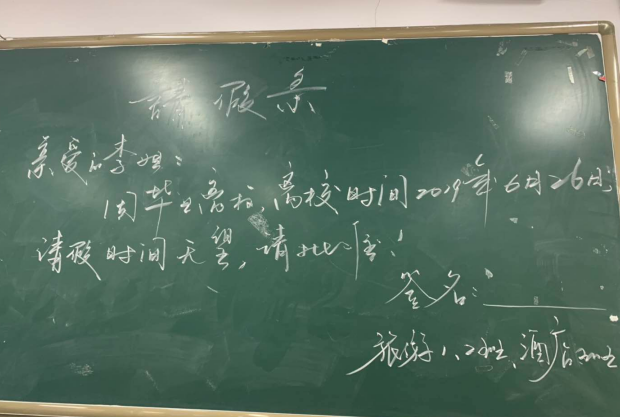 請假条
亲爱的李姐:
因毕业离校,离校时间2019年6月26日,
请假时间无 ,请批准!
签名:________
旅游1、2班、酒店 班